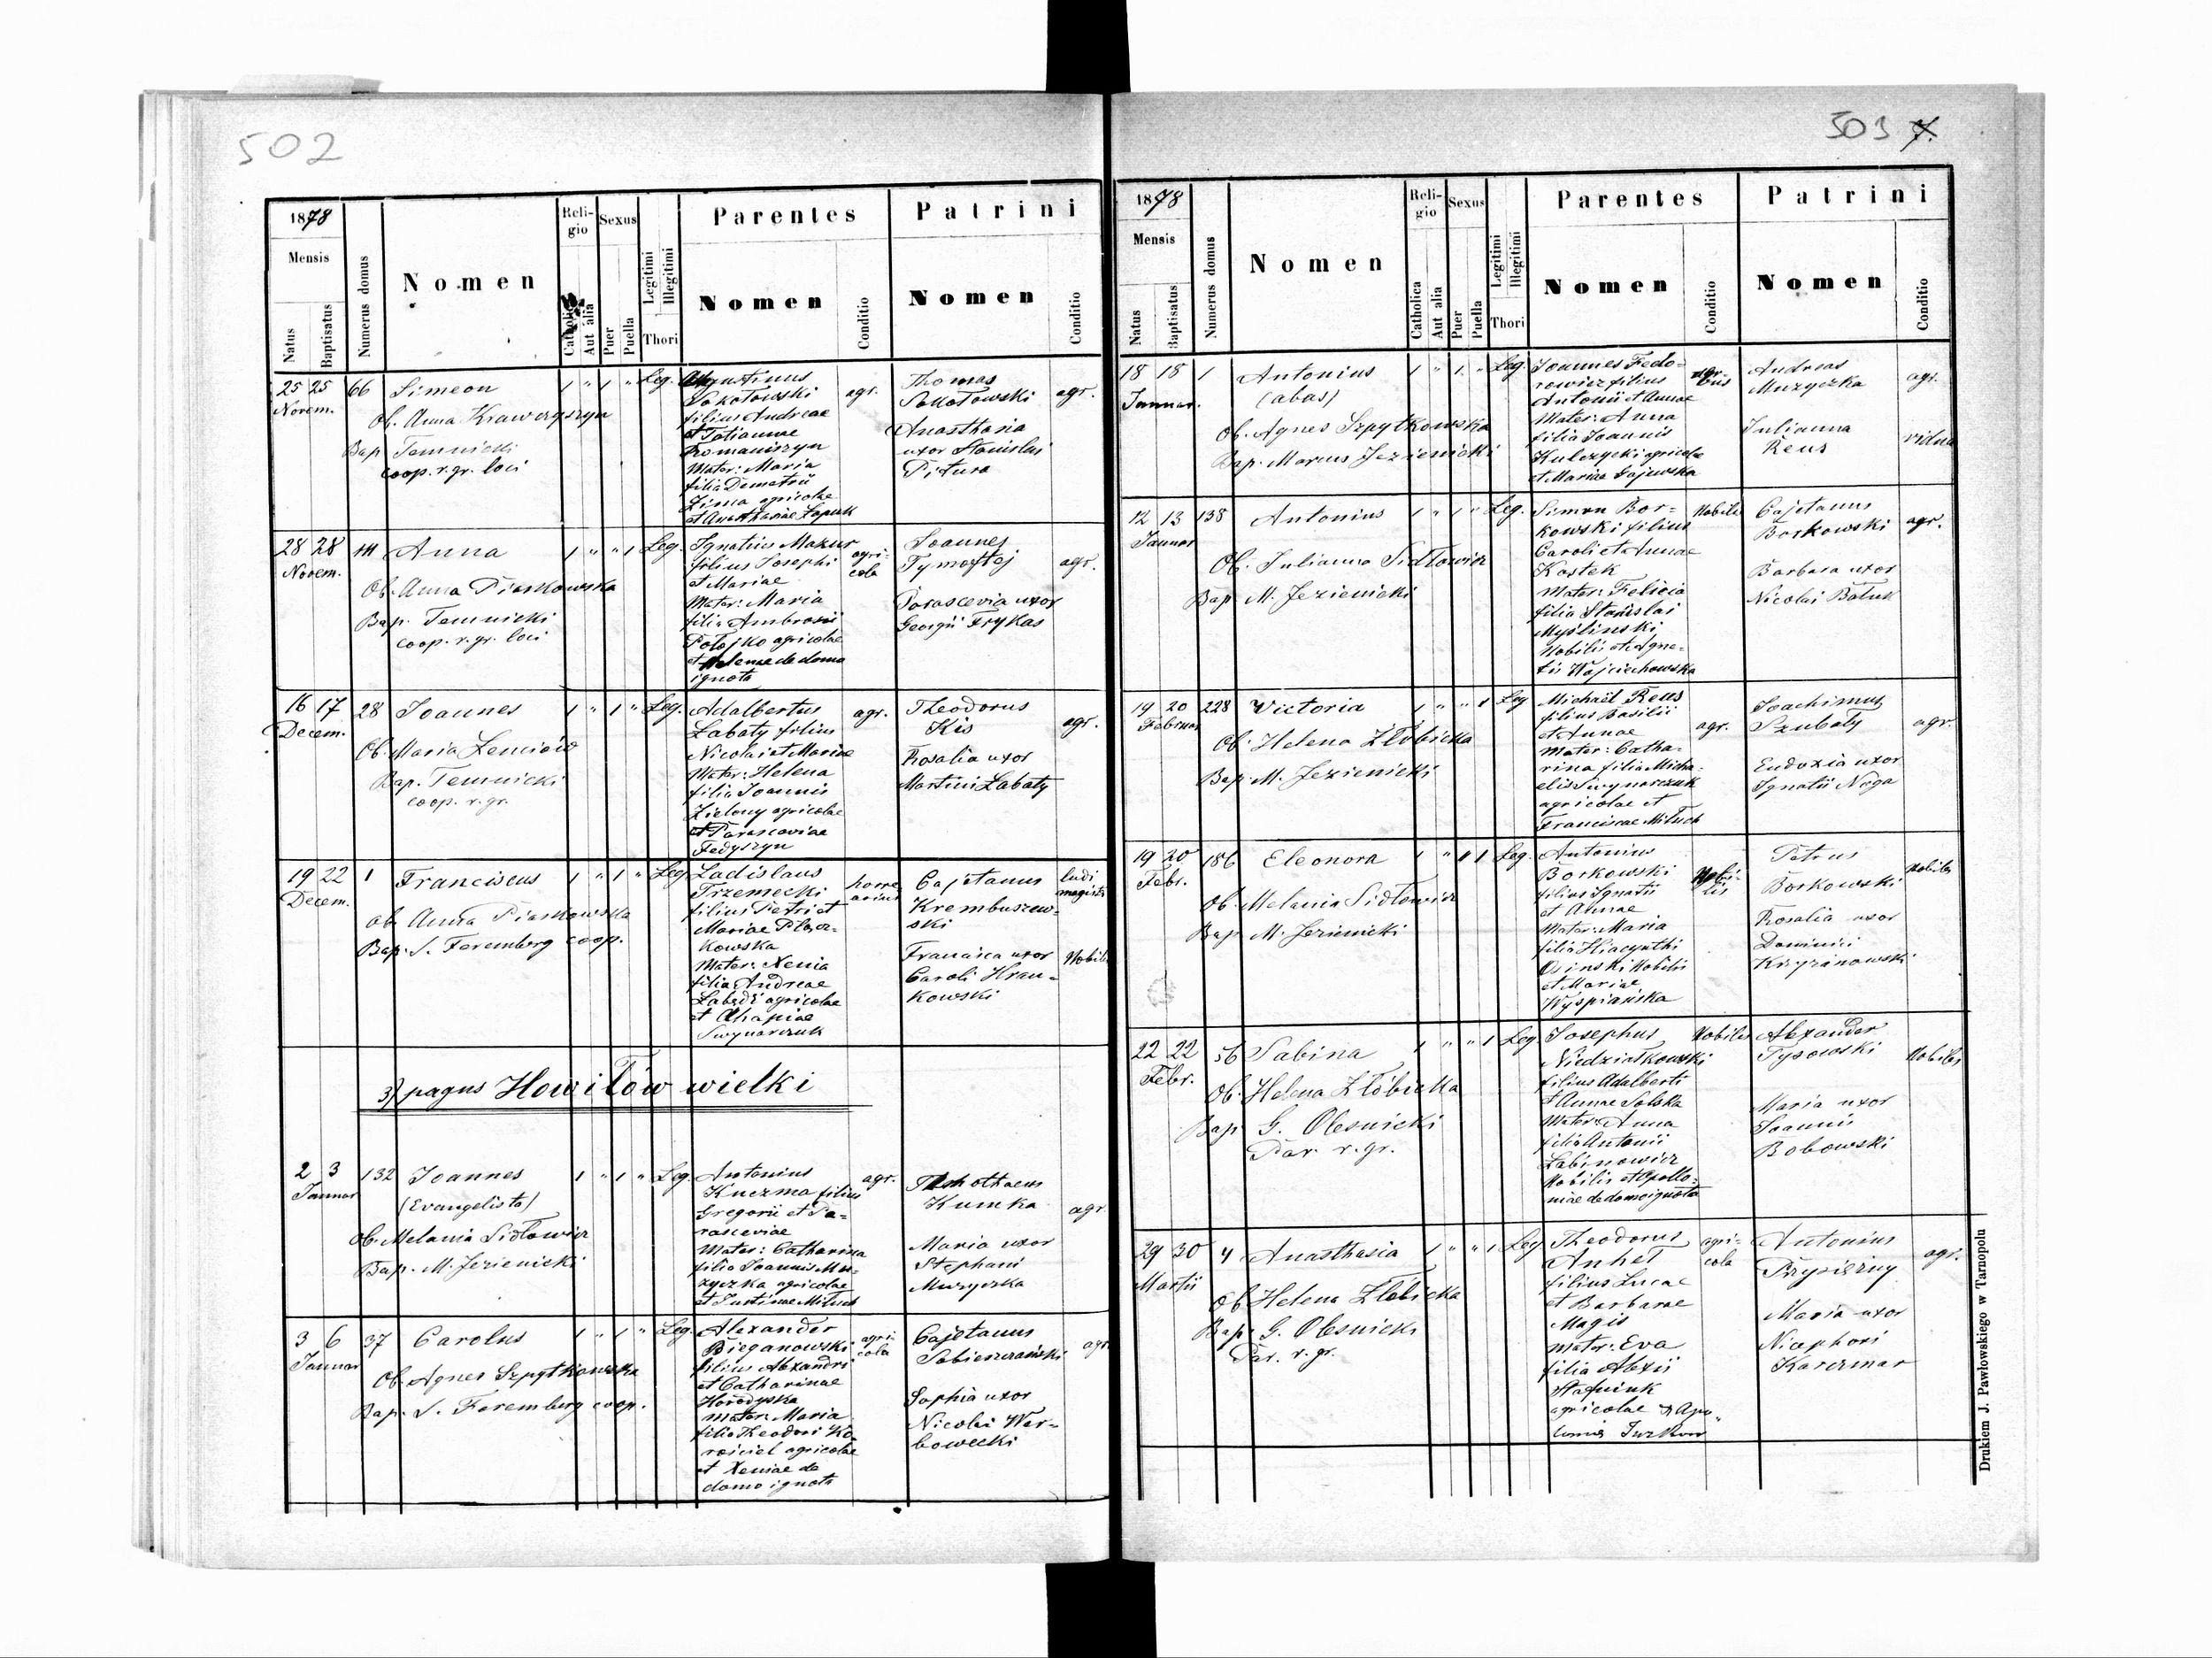 502
1878
Mensis
Natus
Baptisatus
Numerus domus
Nomen
Reli-
gio
Catholica
Aut alia
Sexus
Puer
Puella
Legitimi
Illegitimi
Thori
Parentes
Nomen
Conditio
Patrini
Nomen
Conditio
25 25
Novem.
66
Simeon
Ob. Anna Krawczyszyn
Bap. Temnicki
coop. r. gr. loci
1 " 1 "
Leg.
Augustinus
Sokołowski
filius Andreae
et Tatiannae
Romaniszyn
Mater: Maria
filia Demetrii
Zima agricolae
et Anasthasiae Łapuk
agr.
Thomas
Sokołowski
Anasthasia
uxor Stanislai
Pitura
agr.
28 28
Novem.
111
Anna
Ob. Anna Piaskowska
Bap. Temnicki
coop. r. gr. loci
1 " " 1
Leg.
Ignatius Mazur
filius Josephi
et Mariae
Mater: Maria
filia Ambrosii
Potojko agricolae
et Helenae de domo
ignota
agri-
cola
Joannes
Tymoftej
Parascevia uxor
Georgii Frykas
agr.
16 17
Decem.
28
Joannes
Ob. Maria Lenciów
Bap. Temnicki
coop. r. gr.
1 " 1 "
Leg.
Adalbertus
Łabaty filius
Nicolai et Mariae
Mater: Helena
filia Joannis
Zielony agricolae
et Parasceviae
Fedyszyn
agr.
Theodorus
Kis
Rosalia uxor
Martini Łabaty
agr.
19 22
Decem.
1
Franciscus
Ob. Anna Piaskowska
Bap. S. Feremberg coop.
1 " 1 "
Leg.
Ladislaus
Trzemecki
filius Petri et
Mariae
kowska
Mater: Xenia
filia Andreae
Łabędź agricolae
et Ahapiae
Swynarczuk
horre
arius
Cajetanus
Krembuszew-
ski
Francisca uxor
Caroli Hran-
kowski
ludi
magister
Nobilis
3) pagus Howiłów wielki
2 3
Januar
132
Joannes
(Evangelista)
Ob. Melania Sidłowicz
Bap. M. Jezienicki
1 " 1 "
Leg.
Antonius
Kuczma filius
Gregorii et Pa-
rasceviae
Mater: Catharina
filia Joannis Mu-
zyczka agricolae
et Justinae Mituch
agr.
Thimothaeus
Kumka
Maria uxor
Stephani
Muzyczka
agr.
3 6
Januar
37
Carolus
Ob. Agnes Szpytkowska
Bap. S. Feremberg coop.
1 " 1 "
Leg.
Alexander
Bieganowski
filius Alexandri
et Catharinae
Horodyska
Mater: Maria
filia Theodori Ko-
rościel agricolae
et Xeniae de
domo ignota
agri-
cola
Cajetanus
Sobieszczański
Sophia uxor
Nicolai Wer-
bowecki
agr.
503 7.
1878
Mensis
Natus
Baptisatus
Numerus domus
Nomen
Reli-
gio
Catholica
Aut alia
Sexus
Puer
Puella
Legitimi
Illegitimi
Thori
Parentes
Nomen
Conditio
Patrini
Nomen
Conditio
18 18
Januar.
1
Antonius
(abas)
Ob. Agnes Szpytkowska
Bap. Marcus Jezienicki
1 " 1 "
Leg.
Joannes Fedo-
rowicz filius
Antonii et Annae
Mater: Anna
filia Joannis
Kulczycki agricolae
et Mariae Gajewska
Andreas
Muzyczka
Julianna
Reus
agr.
vidua
12 13
Januar
138
Antonius
Ob. Julianna Sidłowicz
Bap. M. Jezienicki
1 " 1 "
Leg.
Simon Bor-
kowski filius
Caroli et Annae
Kostek
Mater: Felicia
filia Stanislai
Myśliński
Nobilis et Agne-
tis Wojciechowska
Nobilis
Cajetanus
Borkowski
Barbara uxor
Nicolai Botuk
agr.
19 20
Februar
228
Victoria
Ob. Helena Złobicka
Bap. M. Jezienicki
1 " " 1
Leg
Michaël Reus
filius Basilii
et Annae
Mater: Catha-
rina filia Micha-
elis Swynarczuk
agricolae et
Franciscae Mituch
agr.
Joachimus
Szubaty
Eudoxia uxor
Ignatii Noga
agr.
19 20
Febr.
186
Eleonora
Ob. Melania Sidłowicz
Bap. M. Jezienicki
1 " " 1
Leg.
Antonius
Borkowski
filius Ignatii
et Annae
Mater: Maria
filia Hiacynthi
Osinski Nobilis
et Mariae
Wyspiańska
Nobi-
lis
Petrus
Borkowski
Rosalia uxor
Dominici
Krzyzanowski
Nobilis
22 22
Febr.
56
Sabina
Ob. Helena Złobicka
Bap. G. Olesnicki
Par. r. gr.
1 " " 1
Leg
Josephus
Niedziałkowski
filius Adalberti
et Annae Solska
Mater: Anna
filia Antonii
Łabinowicz
Nobilis et Apollo-
niae de domo ignota
Nobilis
Alexander
Tysowski
Maria uxor
Joannis
Bobowski
Nobilis
29 30
Martii
4
Anasthasia
Ob. Helena Złobicka
Bap. G. Olesnicki
Par. r. gr.
1 " " 1
Leg
Theodorus
Anhel
filius Lucae
et Barbarae
Magis
Mater: Eva
filia Alexii
agricolae
agri-
cola
Antonius
Przysiężny
Maria uxor
Nicephori
Karczmar
agr.
Drukiem J. Pawłowskiego w Tarnopolu